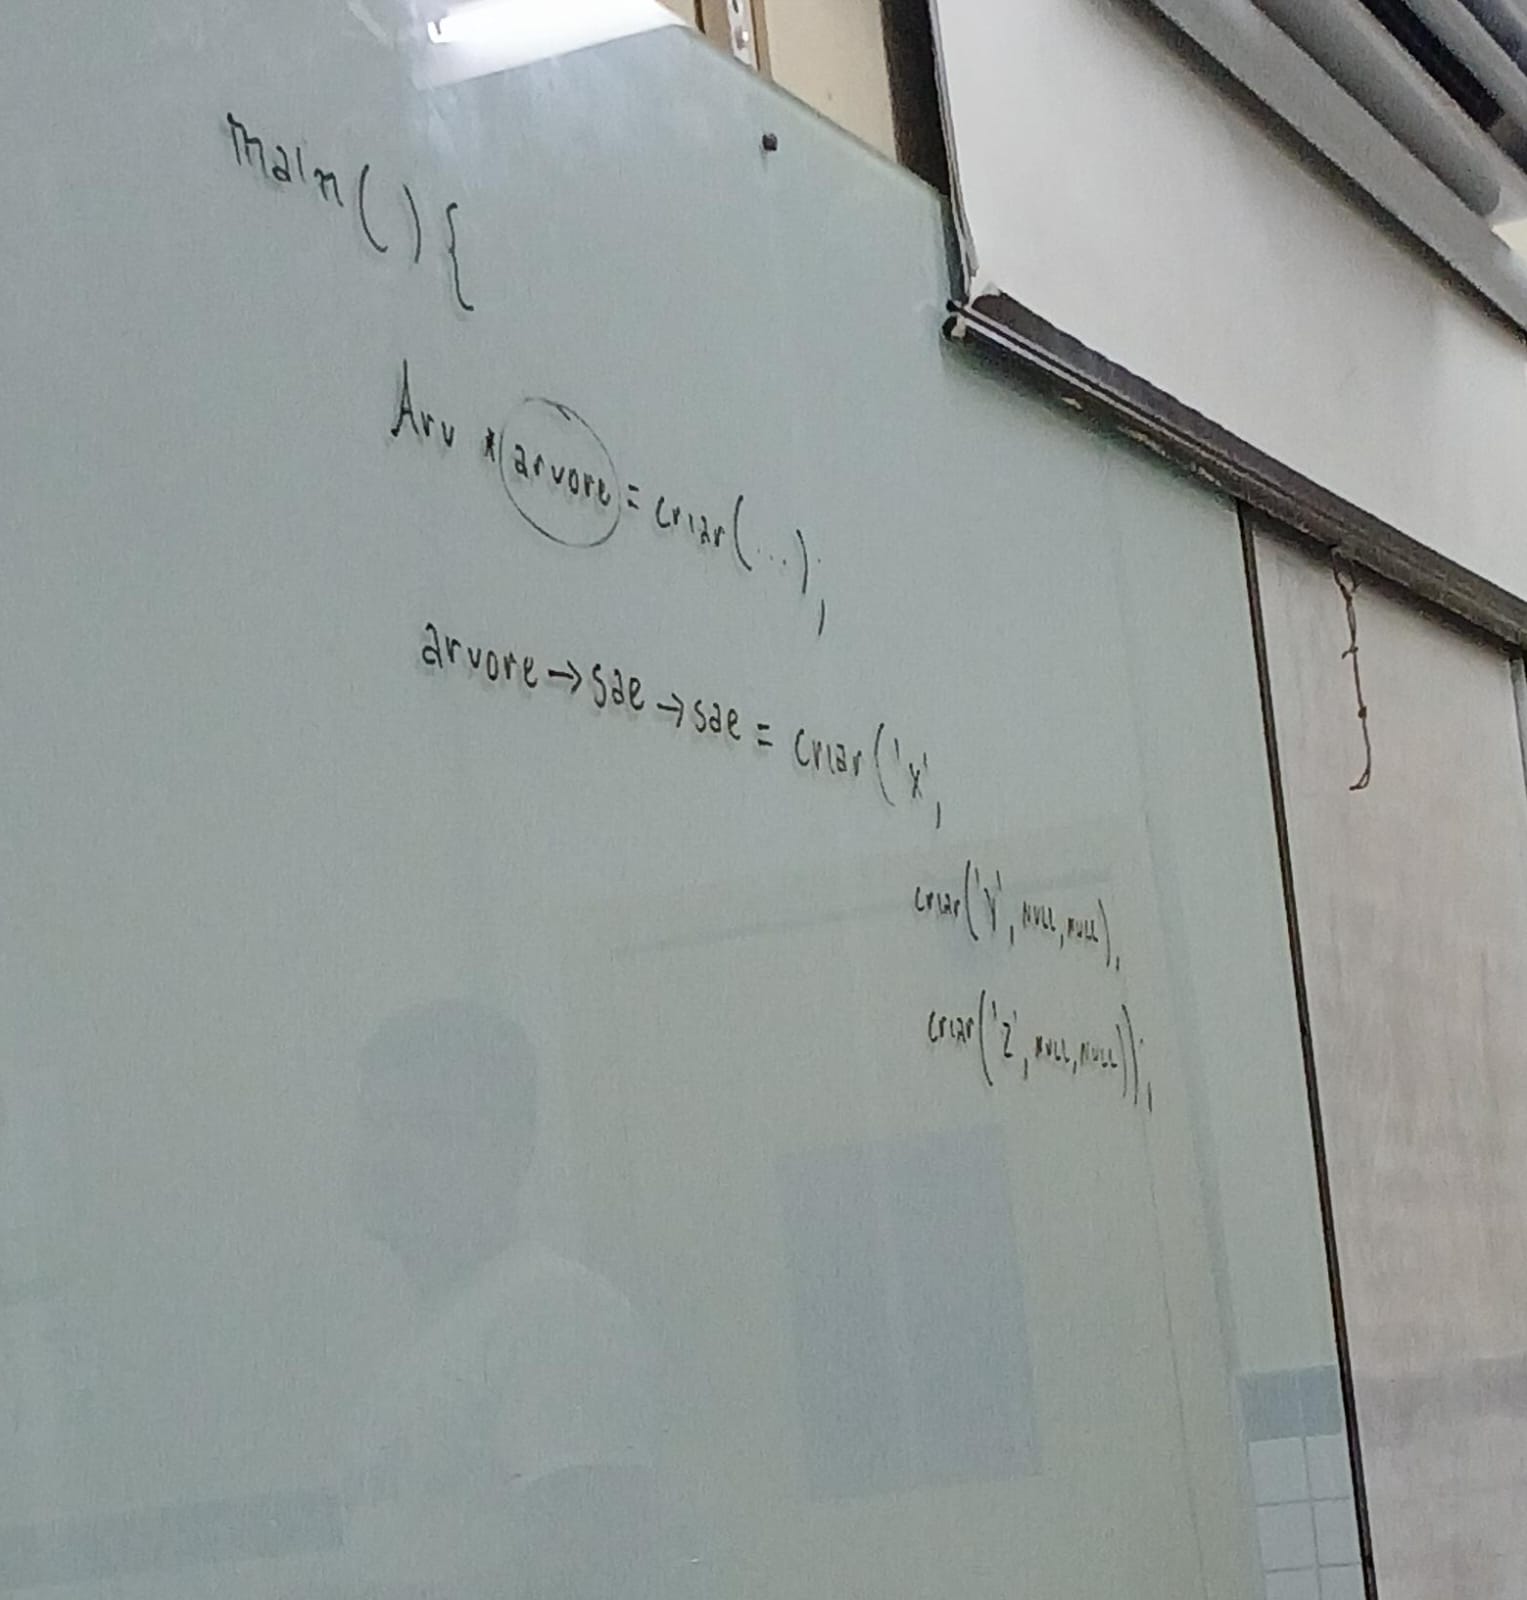 main(){
Arv *arvore = criar(...);
arvore→sae→sae = criar('x',
criar('y', NULL, NULL),
criar('z', NULL, NULL));